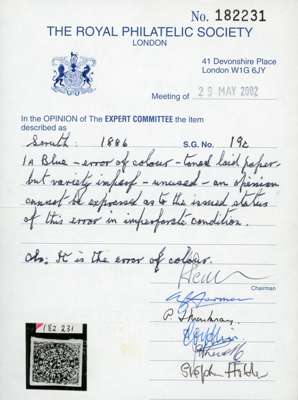 No. 182231
THE ROYAL PHILATELIC SOCIETY
LONDON
41 Devonshire Place
London W1G 6JY
Meeting of 29 MAY 2002
In the OPINION of The EXPERT COMMITTEE the item
described as
Soruth: 1886 S.G. No. 19c
1A Blue - error of colour - toned laid paper -
but variety imperf - unused - an opinion
cannot be expressed as to the issued status
of this error in imperforate condition.
Obs; It is the error of colour.
Chairman
182 231